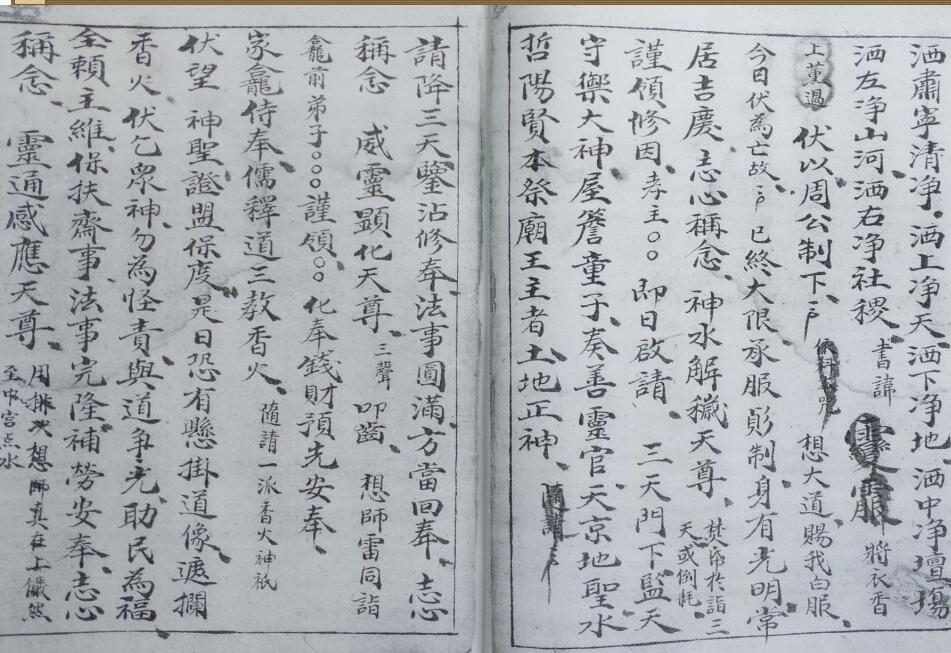 洒肅寧清净洒上净天洒下净地洒中净壇場
洒左净山河洒右净社稷 書諱 將衣香
上薰過 伏以周公制下 想大道賜我白服
今日伏為亡故 已終大限承服制身有光明常
居吉慶志心稱念神水解穢天尊 焚帛於詣三天或倒耗
謹領修因孝主〇〇即日啟請 三天門下監天
守禦大神屋簷童子奏善靈官天京地聖水
哲陽賢本祭廟王主者土地正神 隨請
請降三天鑒沾修奉法事圓滿方當回奉志心
稱念 威靈顯化天尊 三聲 叩齒 想師雷同詣
龕前弟子〇〇〇謹領〇〇化奉錢財預先安奉
家龕侍奉儒釋道三教香火 隨請一派香火神祇
伏望 神聖證盟保度是日恐有懸掛道像遮攔
香火伏乞衆神勿為怪責與道爭光助民為福
全賴主維保扶齋事法事完隆補勞安奉志心
稱念 靈通感應天尊 用 次想師真在上儼然
至中宮点水